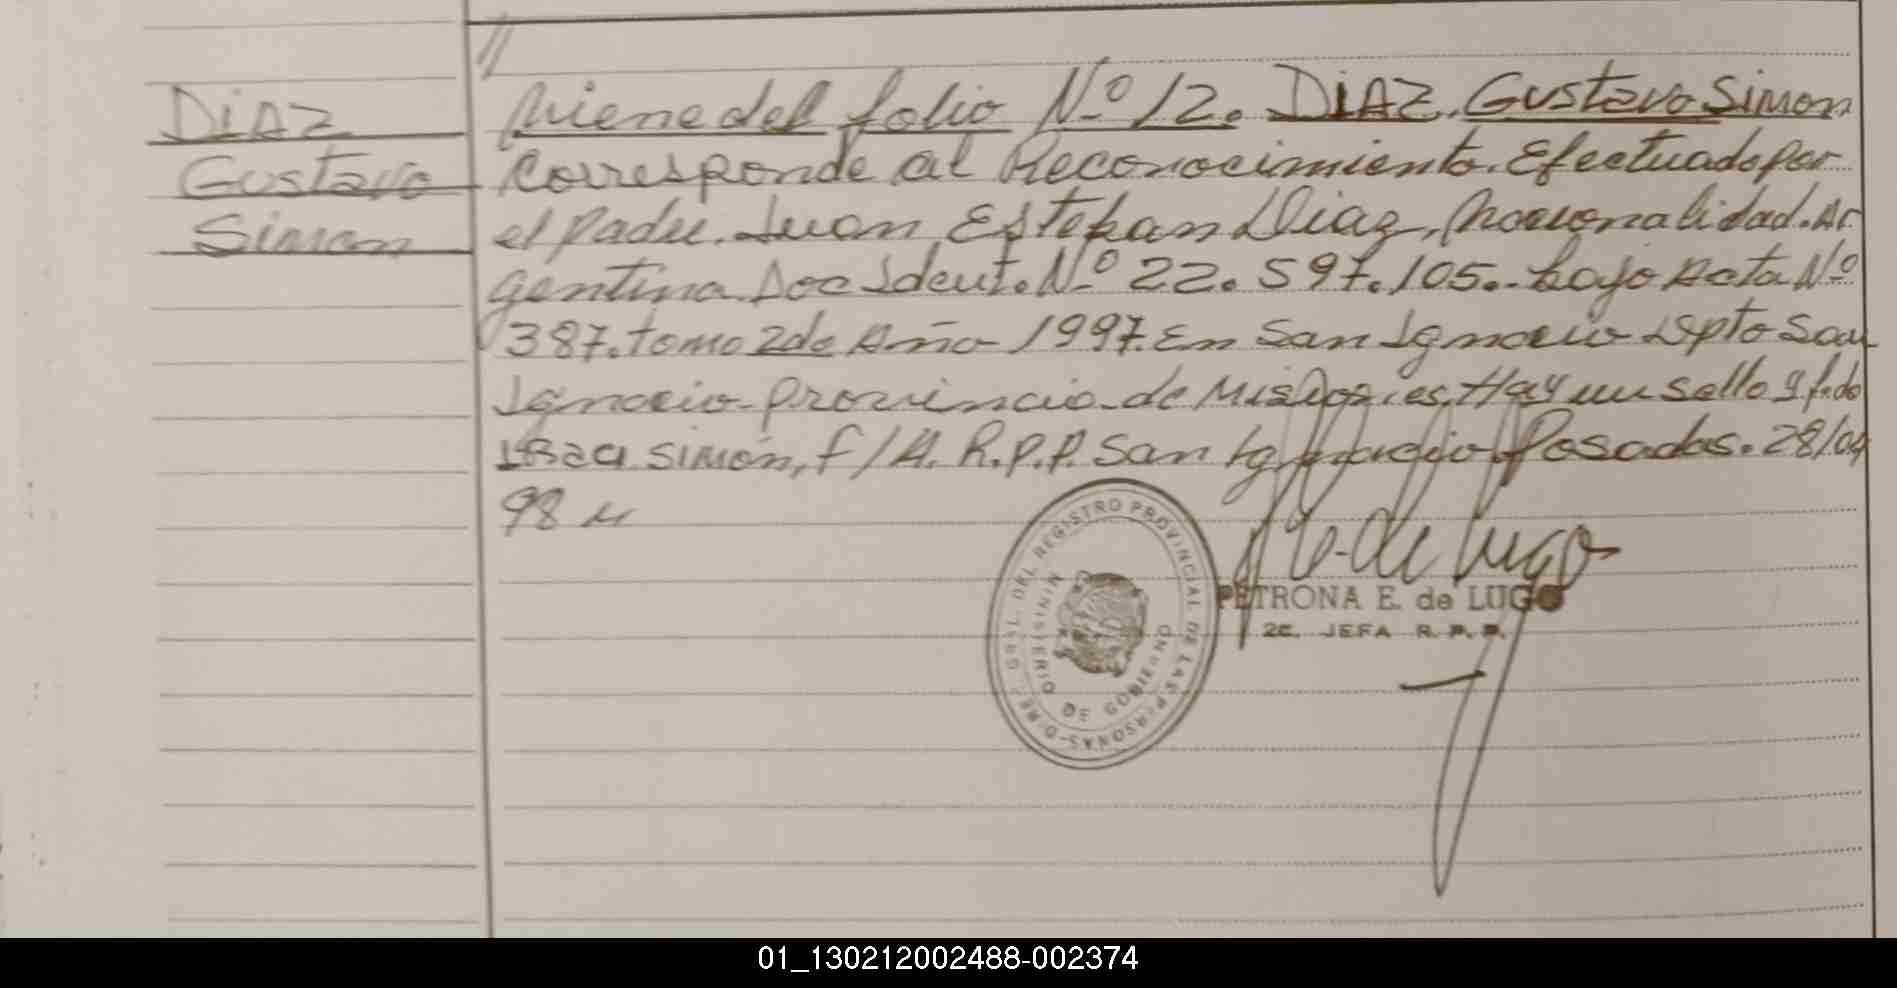 //
DiAZ
Gustavo
Simon
Viene del folio Nº 12. DiAZ, Gustavo Simon
Corresponde al Reconocimiento. Efectuado por
el Padre. Juan Esteban Diaz, Nacionalidad. Ar
gentina. Doc Ident. Nº 22.597.105.- bajo Acta Nº
387. tomo 2de Año 1997. En San Ignacio Dpto San
Ignacio- Provincia de Misiones, Hay un sello y f.do
Simón, f/A. R.P.P. San Ignacio Posadas. 28/04
98
DIRE. GRAL. DEL REGISTRO PROVINCIAL DE LAS PERSONAS
MINISTERIO DE GOBIERNO
de Lugo
PETRONA E. de LUGO
2E. JEFA R. P. P.
01_130212002488-002374